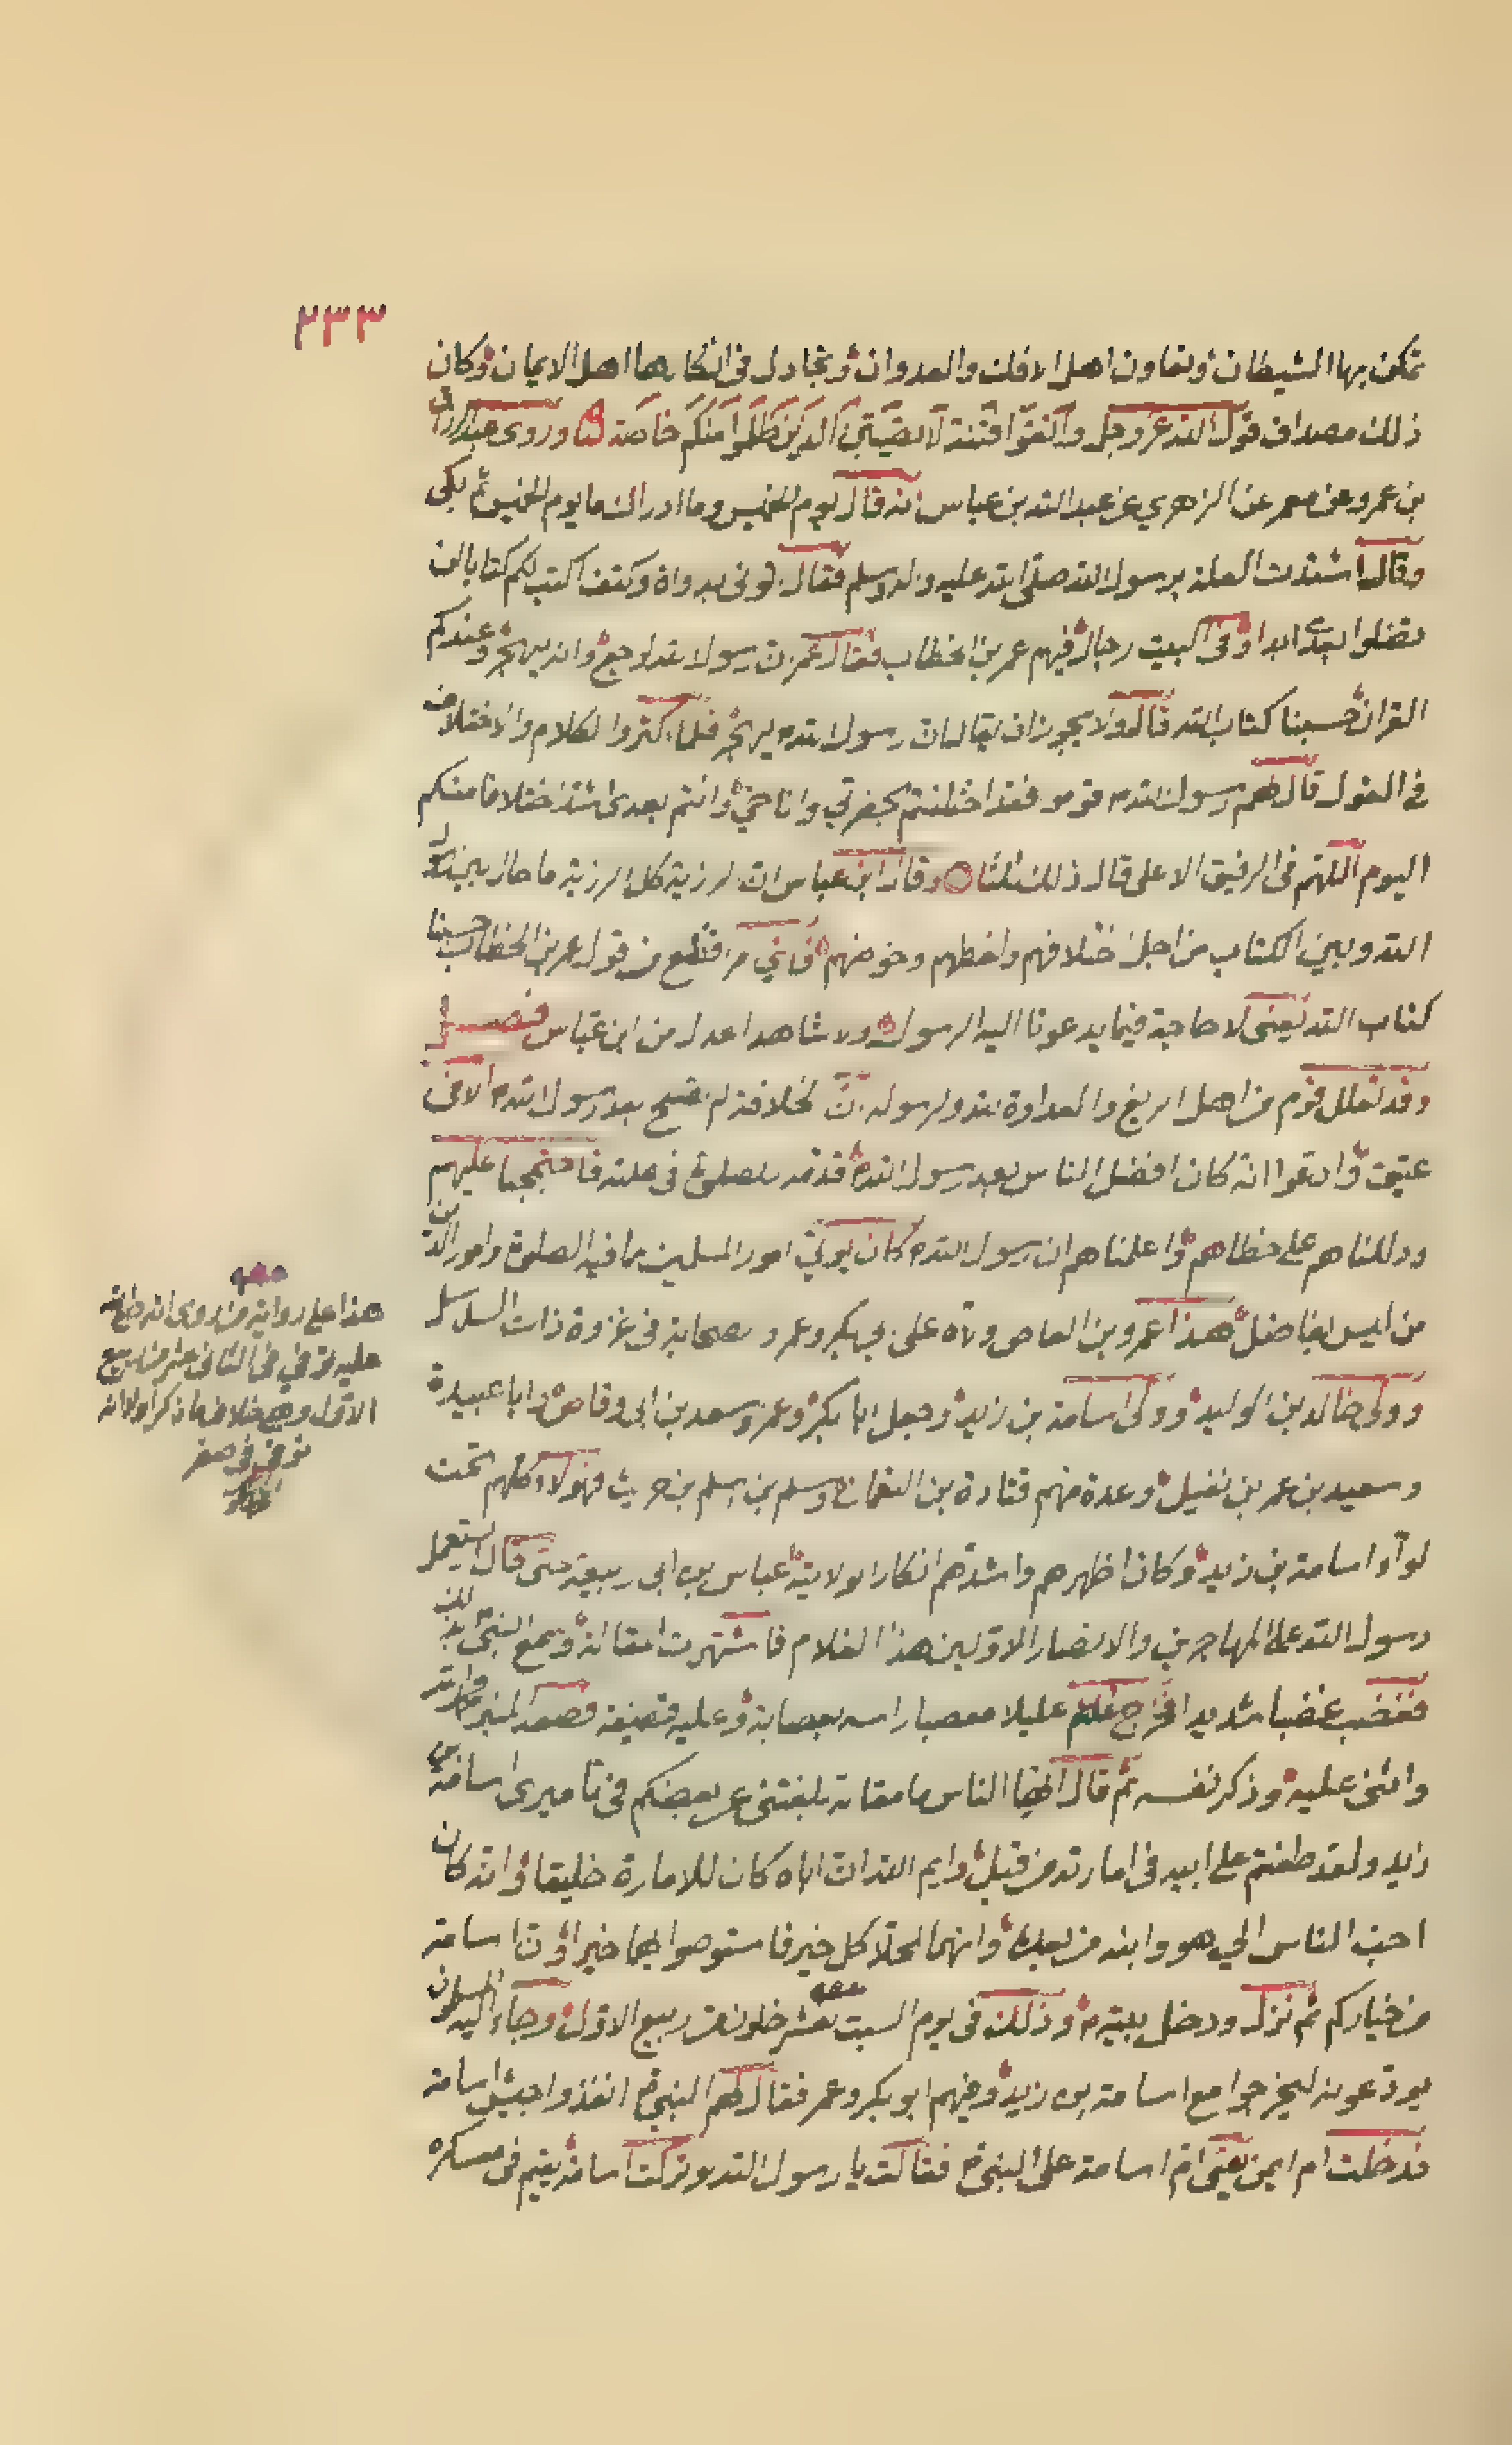 ٢٣٣
تمكن بها الشيطان وتعاون اهل الافك والعدوان وتجادل فى انكارها اهل الايمان وكان
ذلك مصداق قول الله عز وجل واتقوا فتنة لا تصيبن الذين ظلموا منكم خاصة وروى عبد الرزاق
بن عمر وعن معمر عن الزهري عن عبد الله بن عباس انه قال يوم الخميس وما ادراك ما يوم الخميس ثم بكى
وقال اشتدت العلة برسول الله صلى الله عليه واله وسلم فقال ايتونى بدواة وكتف اكتب لكم كتابا لن
تضلوا بعده ابدا وفى البيت رجال فيهم عمر بن الخطاب فقال عمر ان رسول الله لوجع وانه ليهجر وعندكم
القران حسبنا كتاب الله قال ولا يجوز ان يقال ان رسول الله يهجر فلما اكثروا الكلام والاختلاف
فى القول قال لهم رسول الله قوموا فقد اختلفتم بحضرتي وانا حي وانتم بعدى اشد اختلافا منكم
اليوم اللهم فى الرفيق الاعلى قال ذلك ثلثا وقال ابن عباس ان الرزية كل الرزية ما حال بين رسول
الله وبين الكتاب من اجل اختلافهم ولغطهم وخوضهم فاني من قول عمر بن الخطاب حسبنا
كتاب الله يعنى لا حاجة فيما يدعونا اليه الرسول ولا شاهد اعدل من ابن عباس فصل
وقد تعلل قوم من اهل الزيغ والعداوة لله ولرسوله ان الخلافة لم تصح بعد رسول الله الا فى
عتيق وادعوا انه كان افضل الناس بعد رسول الله قدمه للصلوة فى علته فاحتججنا عليهم
ودللناهم على خطاهم واعلمناهم ان رسول الله كان يولي امور المسلمين بما فيه الصلوة وامور الدين
من ليس بفاضل هذا عمرو بن العاص ولاه على ابي بكر وعمر وصحابة فى غزوة ذات السلاسل
وولى خالد بن الوليد وولى اسامة بن زيد وجعل ابا بكر وعمر وسعد بن ابى وقاص وابا عبيدة
وسعيد بن عمر بن نفيل وعدة منهم قتادة بن النعمان وسلم بن اسلم بن حريث فهؤلاء كلهم تحت
لوآء اسامة بن زيد وكان اظهرهم واشدهم انكارا لولايته عباس بن ابى ربيعة حتى قال استعمل
رسول الله على المهاجرين والانصار الاولين هذا الغلام فاشتهرت المقالة وسمع النبي بذلك
فغضب غضبا شديدا عليلا معصبا راسه بعصابة وعليه قطيفة فصعد المنبر وحمد الله
واثنى عليه وذكر نفسه ثم قال ايها الناس ما مقالة بلغتنى عن بعضكم فى تاميرى اسامة بن
زيد ولقد طعنتم على ابيه فى امارته من قبل وايم الله ان اباه كان للامارة خليقا وانه كان
احب الناس الي هو وابنه من بعده وانهما لمحلا كل خير فاستوصوا بهما خيرا وان اسامة
من خياركم ثم نزل ودخل بيته وذلك فى يوم السبت لعشر خلون من ربيع الاول وجاء اليه المسلمون
يودعونه ليخرجوا مع اسامة بن زيد وفيهم ابو بكر وعمر فقال لهم النبي انفذوا جيش اسامة
فدخلت ام ايمن يعنى ام اسامة على النبي فقالت يا رسول الله لو تركت اسامة يقيم فى معسكره
هذا على رواية من روى انه صلى الله
عليه توفي فى الثانى عشر من ربيع
الاول وهو خلاف ما ذكر اولا انه
توفى فى صفر